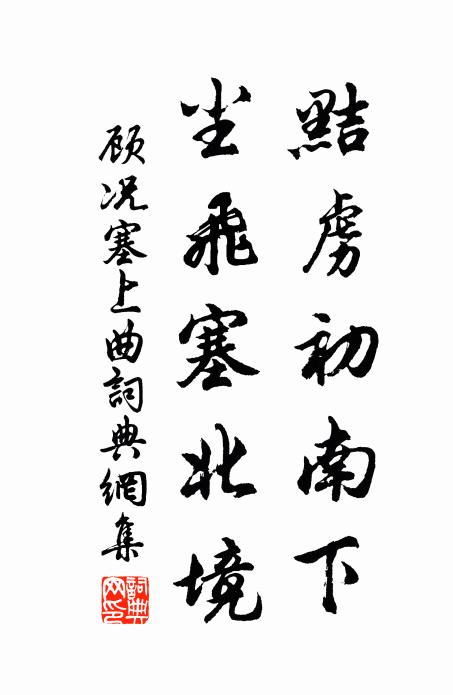 黠虜初南下
尘飛塞北境
顾况塞上曲詞典網集
詞典网印